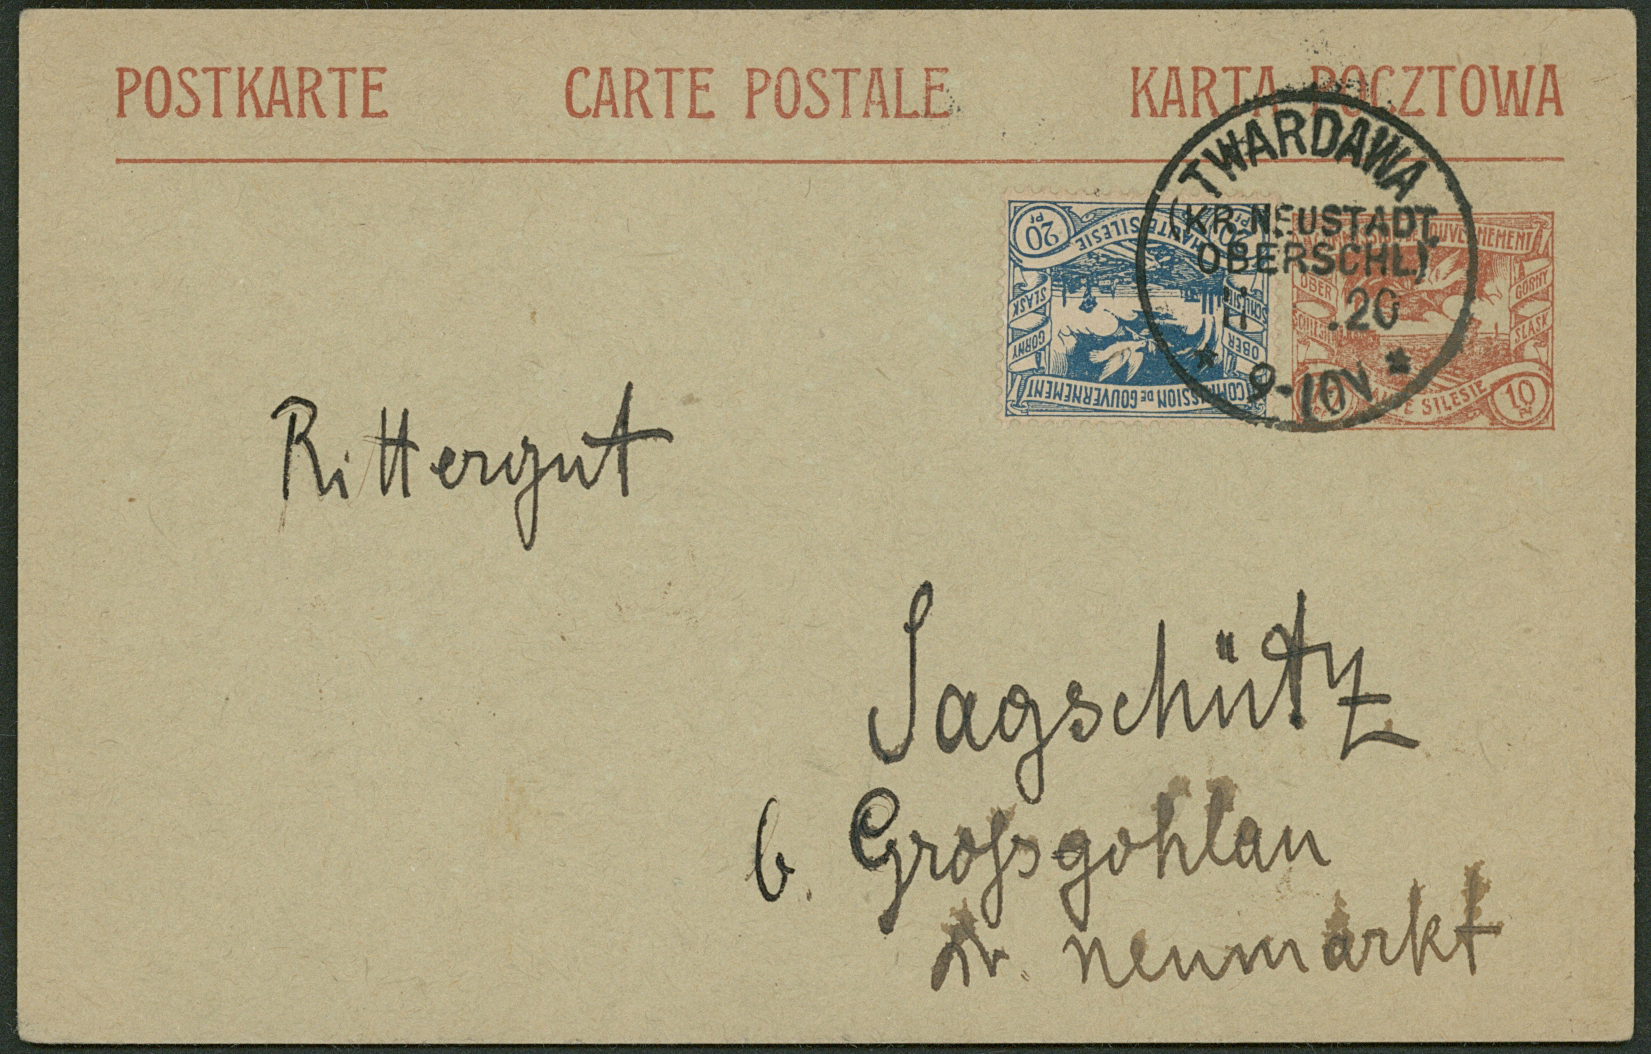 POSTKARTE CARTE POSTALE KARTA POCZTOWA
TWARDAWA
(KR. NEUSTADT
OBERSCHL.)
.20
9-10V
20 Pf
HAUTE SILESIE
GORNY SLASK
OBER SCHLESIEN
COMMISSION DE GOUVERNEMENT
GOUVERNEMENT
OBER SCHLESIEN
GORNY SLASK
HAUTE SILESIE
10 Pf
Rittergut
Sagschütz
b. Grossgohlau
Kr. Neumarkt